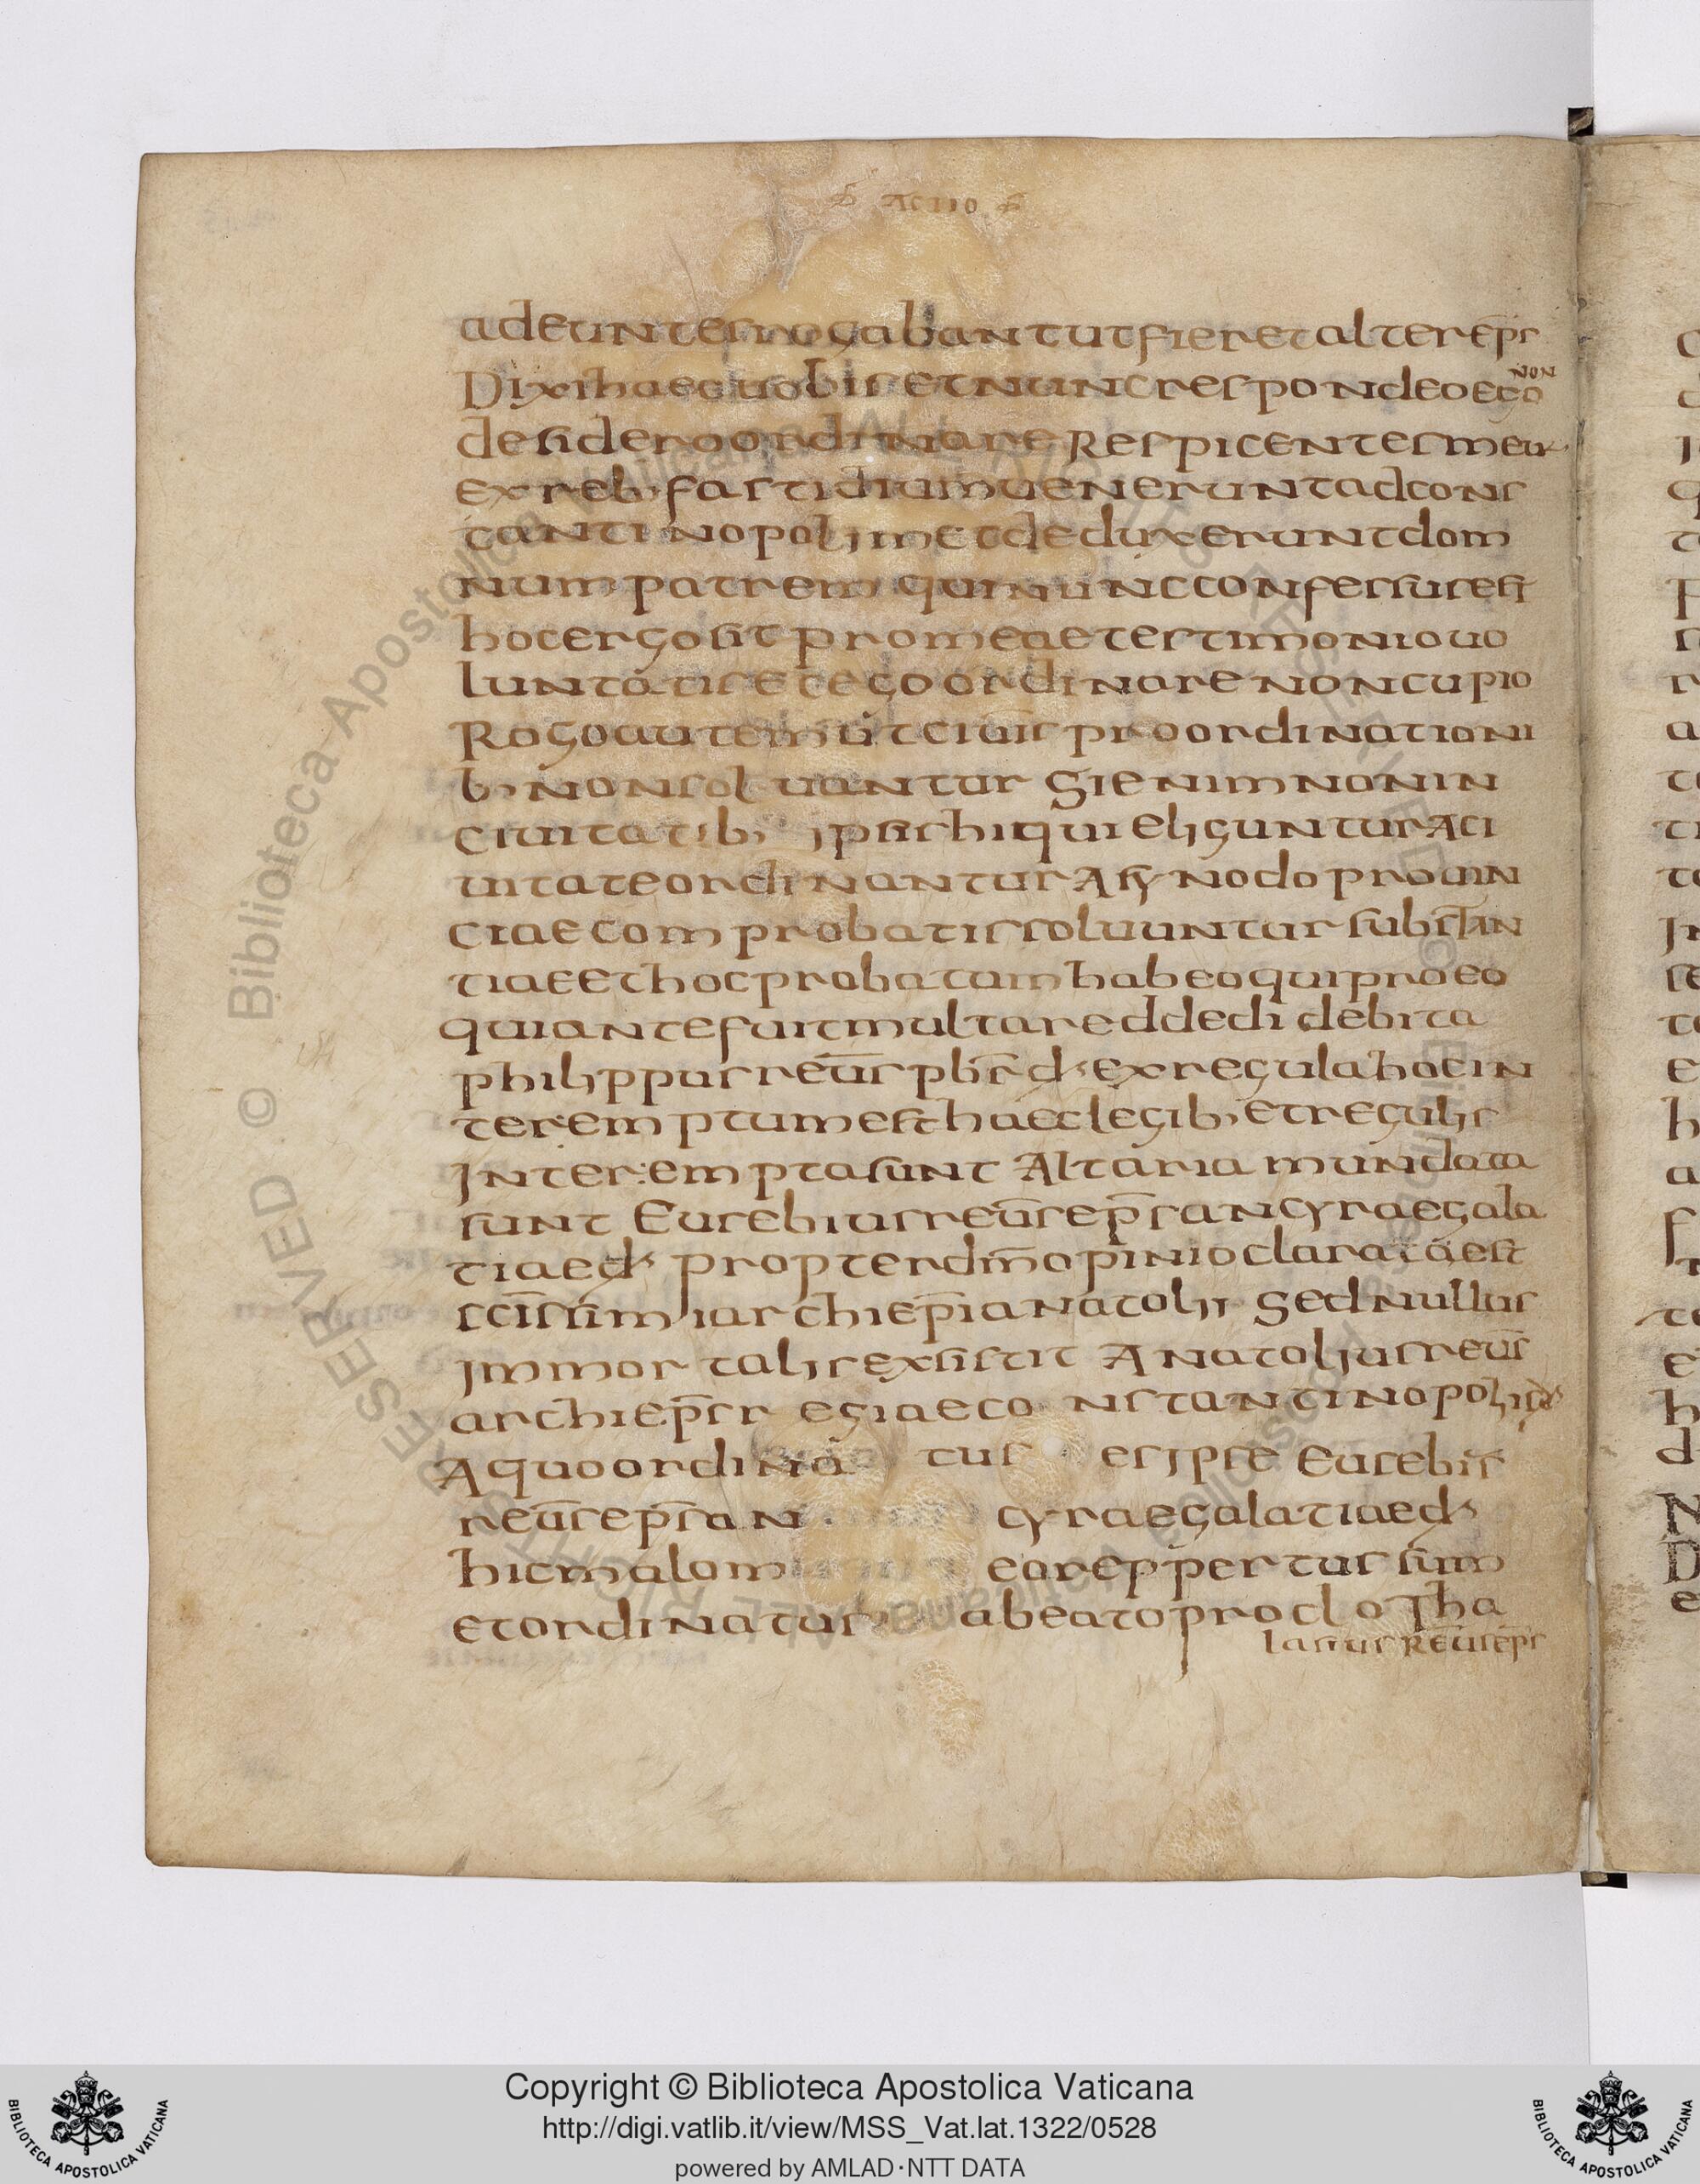 ACTIO
adeuntes rogabant ut fieret alter ep̄s
Dixi haec uobis et nunc respondeo ego
NON
desidero ordinare Respicentes meu
ex reb; fastidium uenerunt ad cons
tantinopolim et deduxerunt dom
num patrem qui nunc confessus est
hoc ergo sit pro meae testimonio uo
luntatis et ego ordinare non cupio
Rogo autem ut ciuis pro ordinationi
b; non soluantur Si enim non in
ciuitatib; ipsis hi qui eliguntur A ci
uitate ordinantur A synodo prouin
ciae comprobatis soluuntur substan
tiae et hoc probatum habeo qui pro eo
qui ante fuit multa reddedi debita
philippus reu̅s pb̅r d; ex regula hoc in
teremptum est haec legib; et regulis
Interempta sunt Altaria mundata
sunt Eusebius reu̅s ep̅s ancyrae gala
tiae d; propter dm̅ opinio clarata est
sc̅issimi archiep̅i anatolii Sed nullus
immortalis exsistit Anatolius reu̅s
archiep̅s regiae constantinopolis d;
A quo ordinatus es ipse Eusebis
reu̅s ep̅s an cyrae galatiae d;
hic malo m eo reppertus sum
et ordinatus a beato proclo Tha
lassus Reu̅s ep̅s
Copyright © Biblioteca Apostolica Vaticana
http://digi.vatlib.it/view/MSS_Vat.lat.1322/0528
powered by AMLAD·NTT DATA
BIBLIOTECA APOSTOLICA VATICANA
BIBLIOTECA APOSTOLICA VATICANA